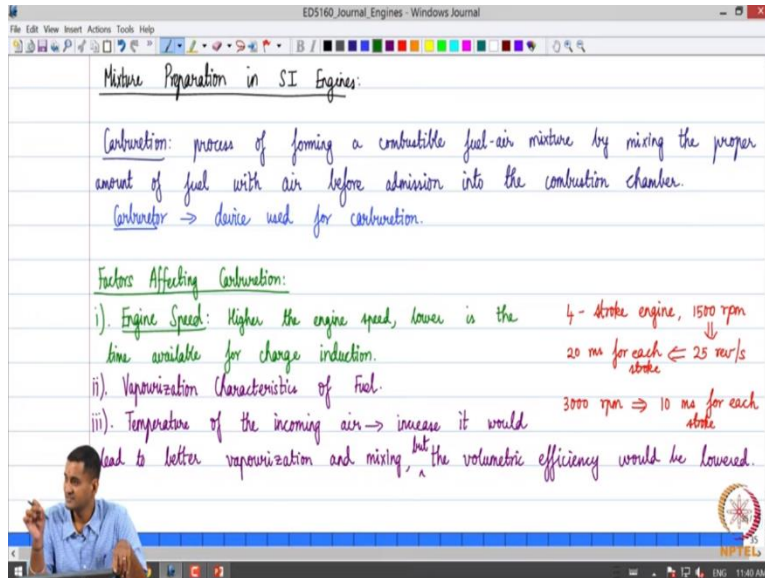 ED5160_Journal_Engines - Windows Journal
File Edit View Insert Actions Tools Help
Mixture Preparation in SI Engines:
Carburetion: process of forming a combustible fuel-air mixture by mixing the proper
amount of fuel with air before admission into the combustion chamber.
Carburetor → device used for carburetion.
Factors Affecting Carburetion:
i). Engine Speed: Higher the engine speed, lower is the
time available for charge induction.
ii). Vapourization Characteristics of Fuel.
iii). Temperature of the incoming air → increase it would
lead to better vapourization and mixing, but the volumetric efficiency would be lowered.
4 - stroke engine, 1500 rpm
⇓
20 ms for each stroke ⇐ 25 rev/s
3000 rpm ⇒ 10 ms for each
stroke
35
NPTEL
ENG 11:40 AM